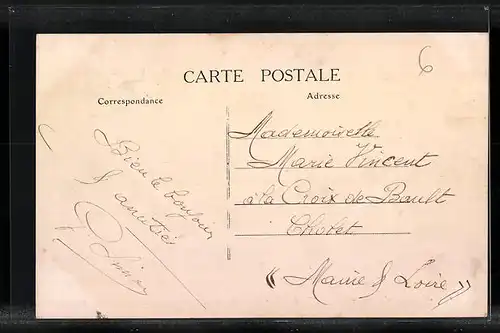 CARTE POSTALE
Correspondance
Adresse
6
Bien le bonjour
& amitiés
Mademoiselle
Marie Vincent
à la Croix de Bault
Cholet
(( Maine & Loire ))